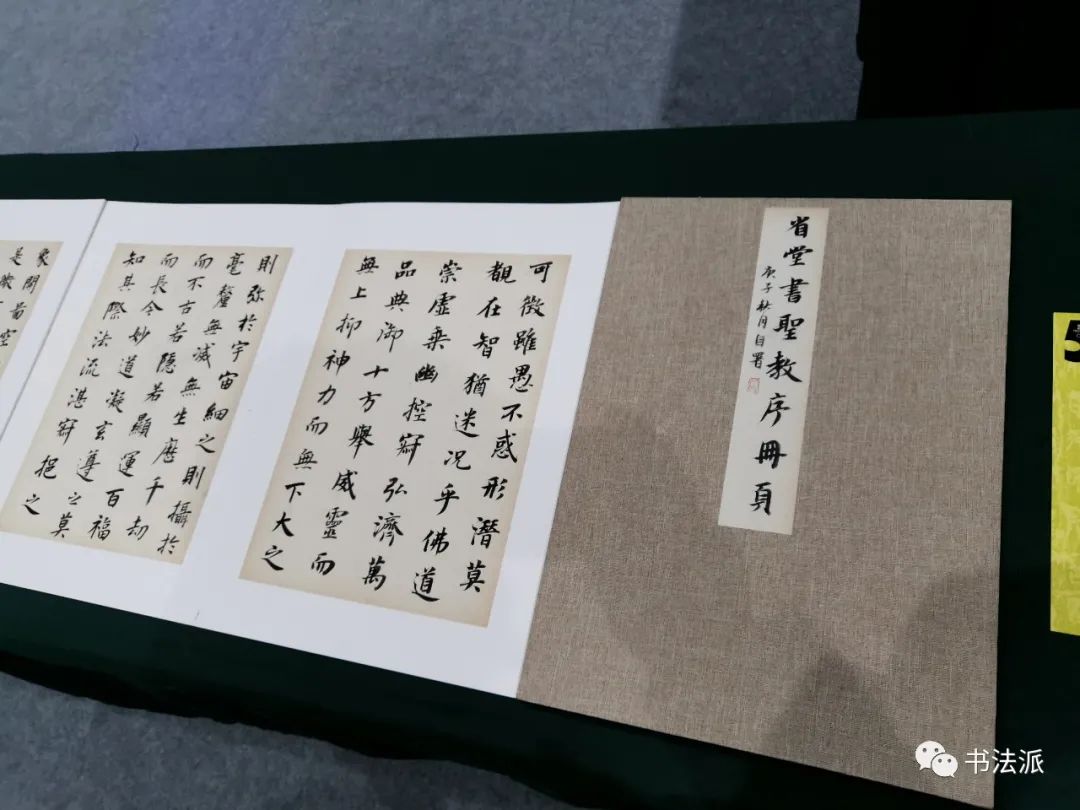 省堂書聖教序冊頁
庚子秋月自署
可微雖愚不惑形潛莫
覩在智猶迷况乎佛道
崇虛乘幽控寂弘濟萬
品典御十方舉威靈而
無上抑神力而無下大之
則弥於宇宙細之則攝於
毫釐無滅無生歷千劫
而不古若隱若顯運百福
而長今妙道凝玄遵之莫
知其際法流湛寂挹之
书法派